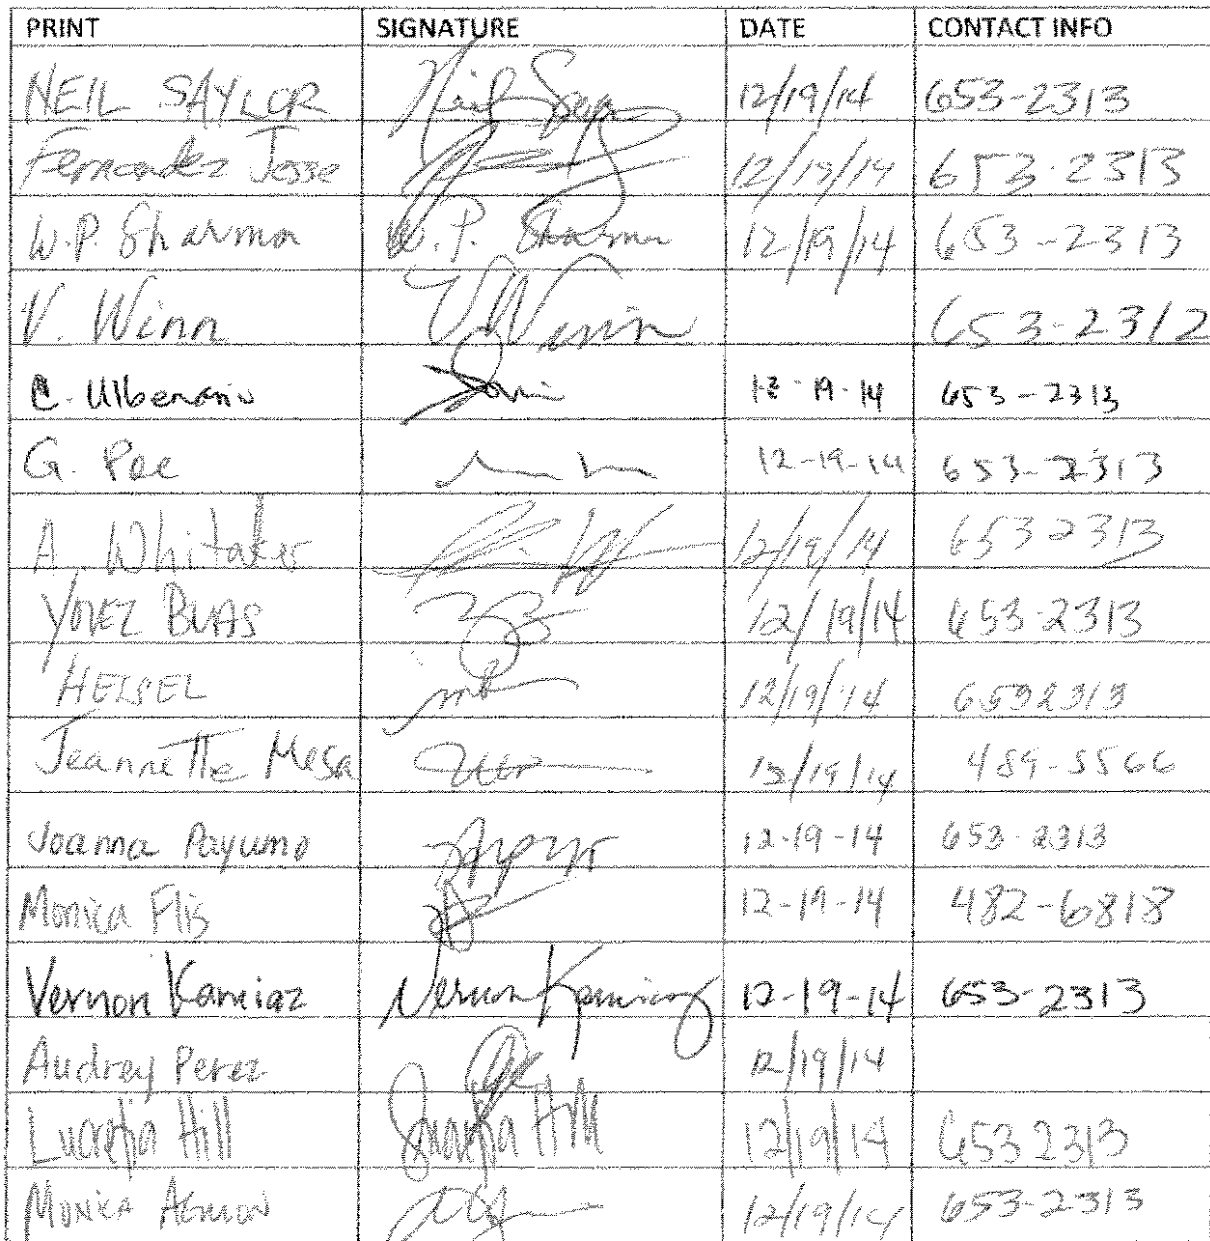 PRINT SIGNATURE DATE CONTACT INFO
NEIL SAYLOR Neil Saylor 12/19/14 653-2313
Fernandez Jesse 12/19/14 653-2313
W.P. Sharma W.P. Sharma 12/19/14 653-2313
V. Winn V Winn 653-2312
C. 12-19-14 653-2313
G. Pee 12-19-14 653-2313
A. Whitaker 12/19/14 653 2313
YONEZ BUAS 12/19/14 653-2313
HEISEL 12/19/14 6532313
Jeannette Mesa 12/19/14 489-5566
Joanna Payumo 12-19-14 653-2313
Monica Flis 12-19-14 482-6818
Vernon Kamiaz Vernon Kamiaz 12-19-14 653-2313
Audrey Perez 12/19/14
Lucretia Hill Lucretia Hill 12/19/14 653 2313
MONICA 12/19/14 653-2313